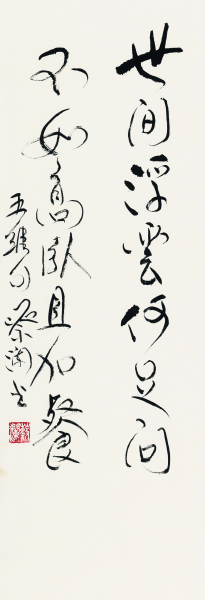 世间浮雲何足问
不如高卧且加餐
王维句 蔡澜书